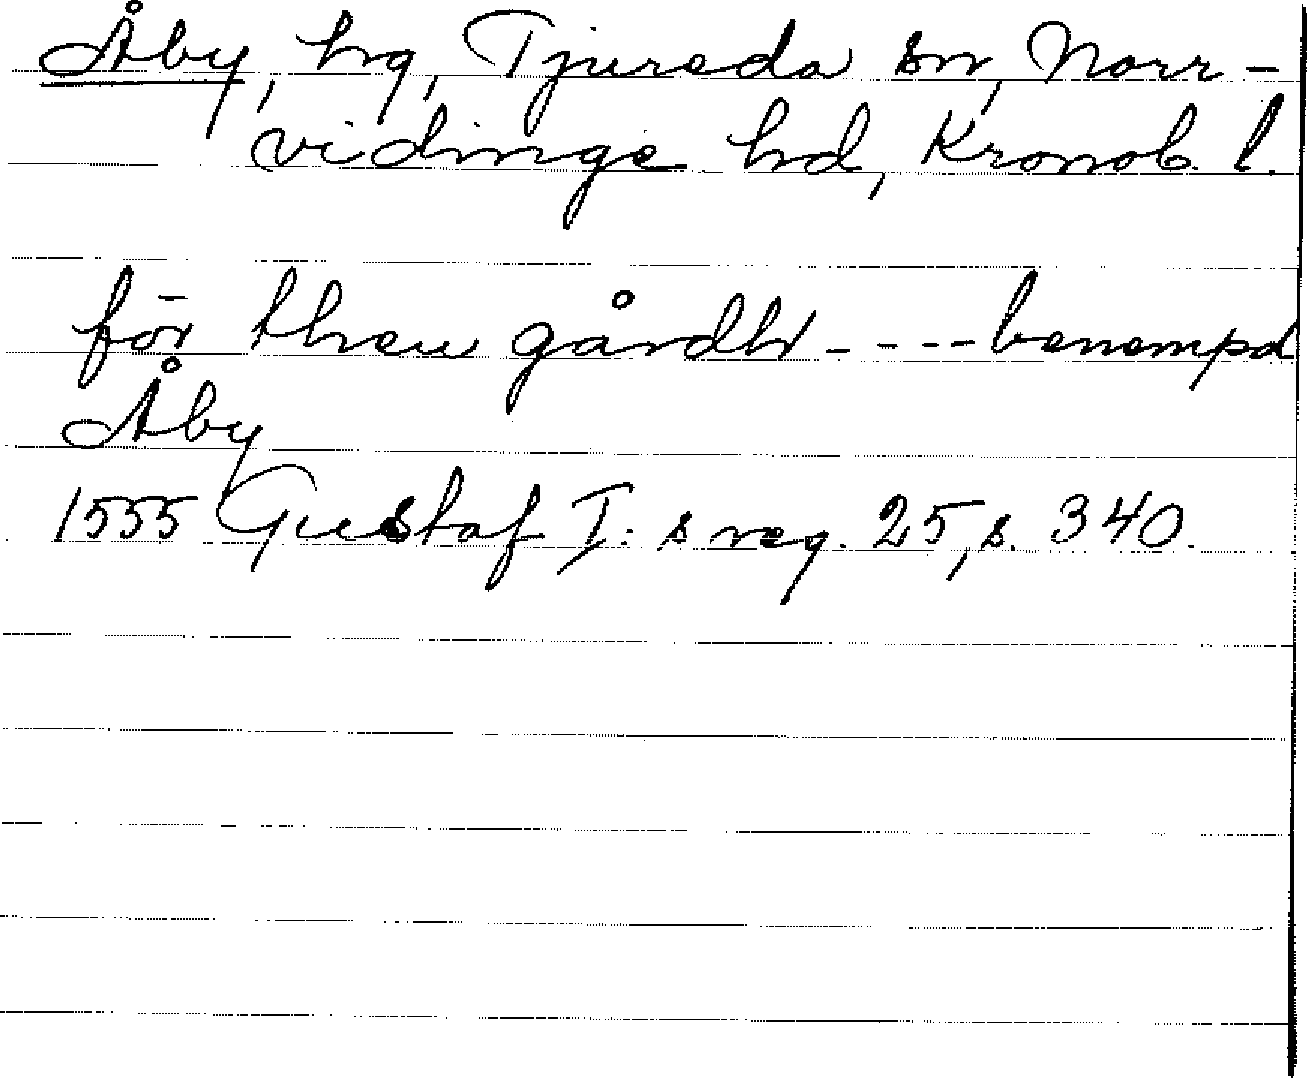 Åby, hg, Tjureda sn, Norr-
vidinge hd, Kronob. l.
för then gårdh - - - - benempd
Åby
1555 Gustaf I: s reg. 25, s. 340.